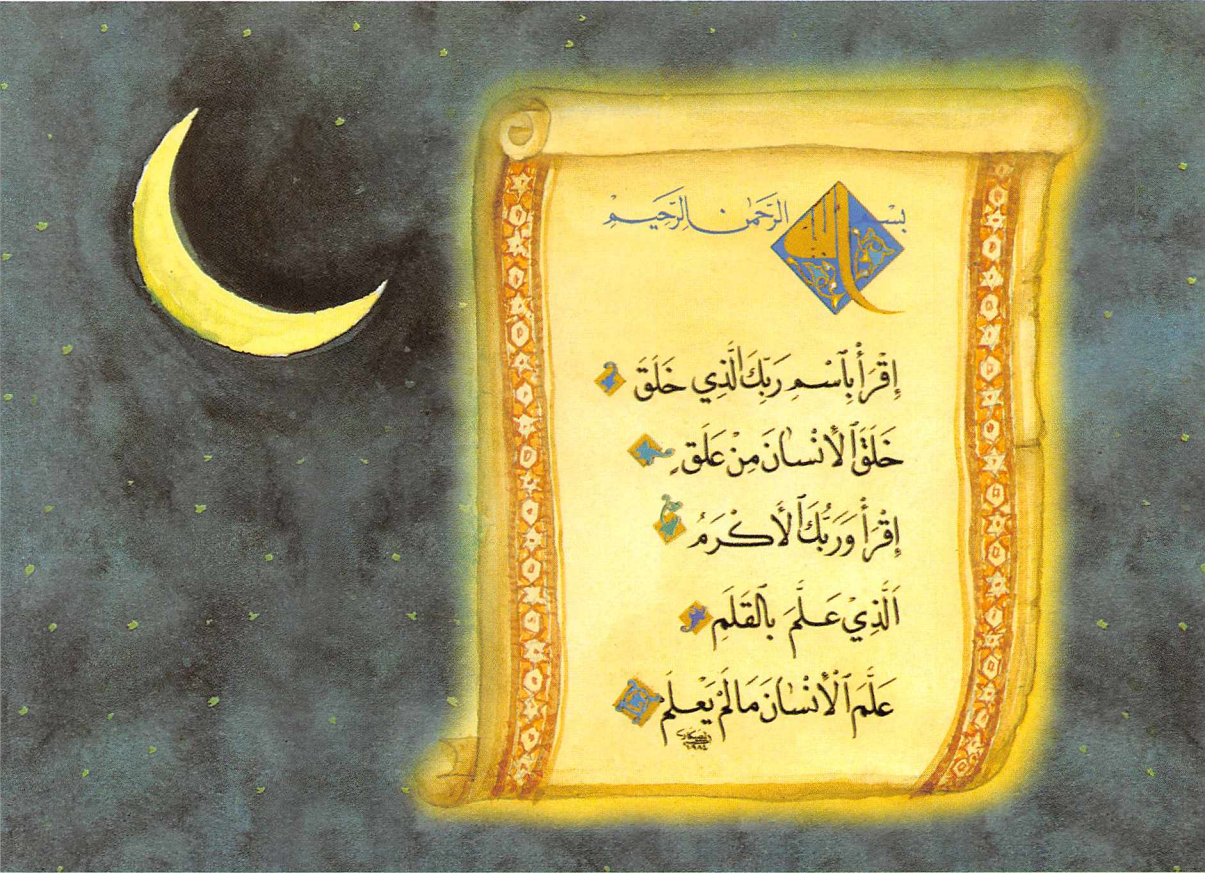 بسم الله الرَّحمٰن الرَّحِيمِ
إِقْرَأْ بِٱسْمِ رَبِّكَ ٱلَّذِي خَلَقَ
خَلَقَ ٱلْأِنْسَانَ مِنْ عَلَقٍ
إِقْرَأْ وَرَبُّكَ ٱلْأَكْرَمُ
ٱلَّذِي عَلَّمَ بِٱلْقَلَمِ
عَلَّمَ ٱلْأِنْسَانَ مَا لَمْ يَعْلَمْ
١٩٨٤